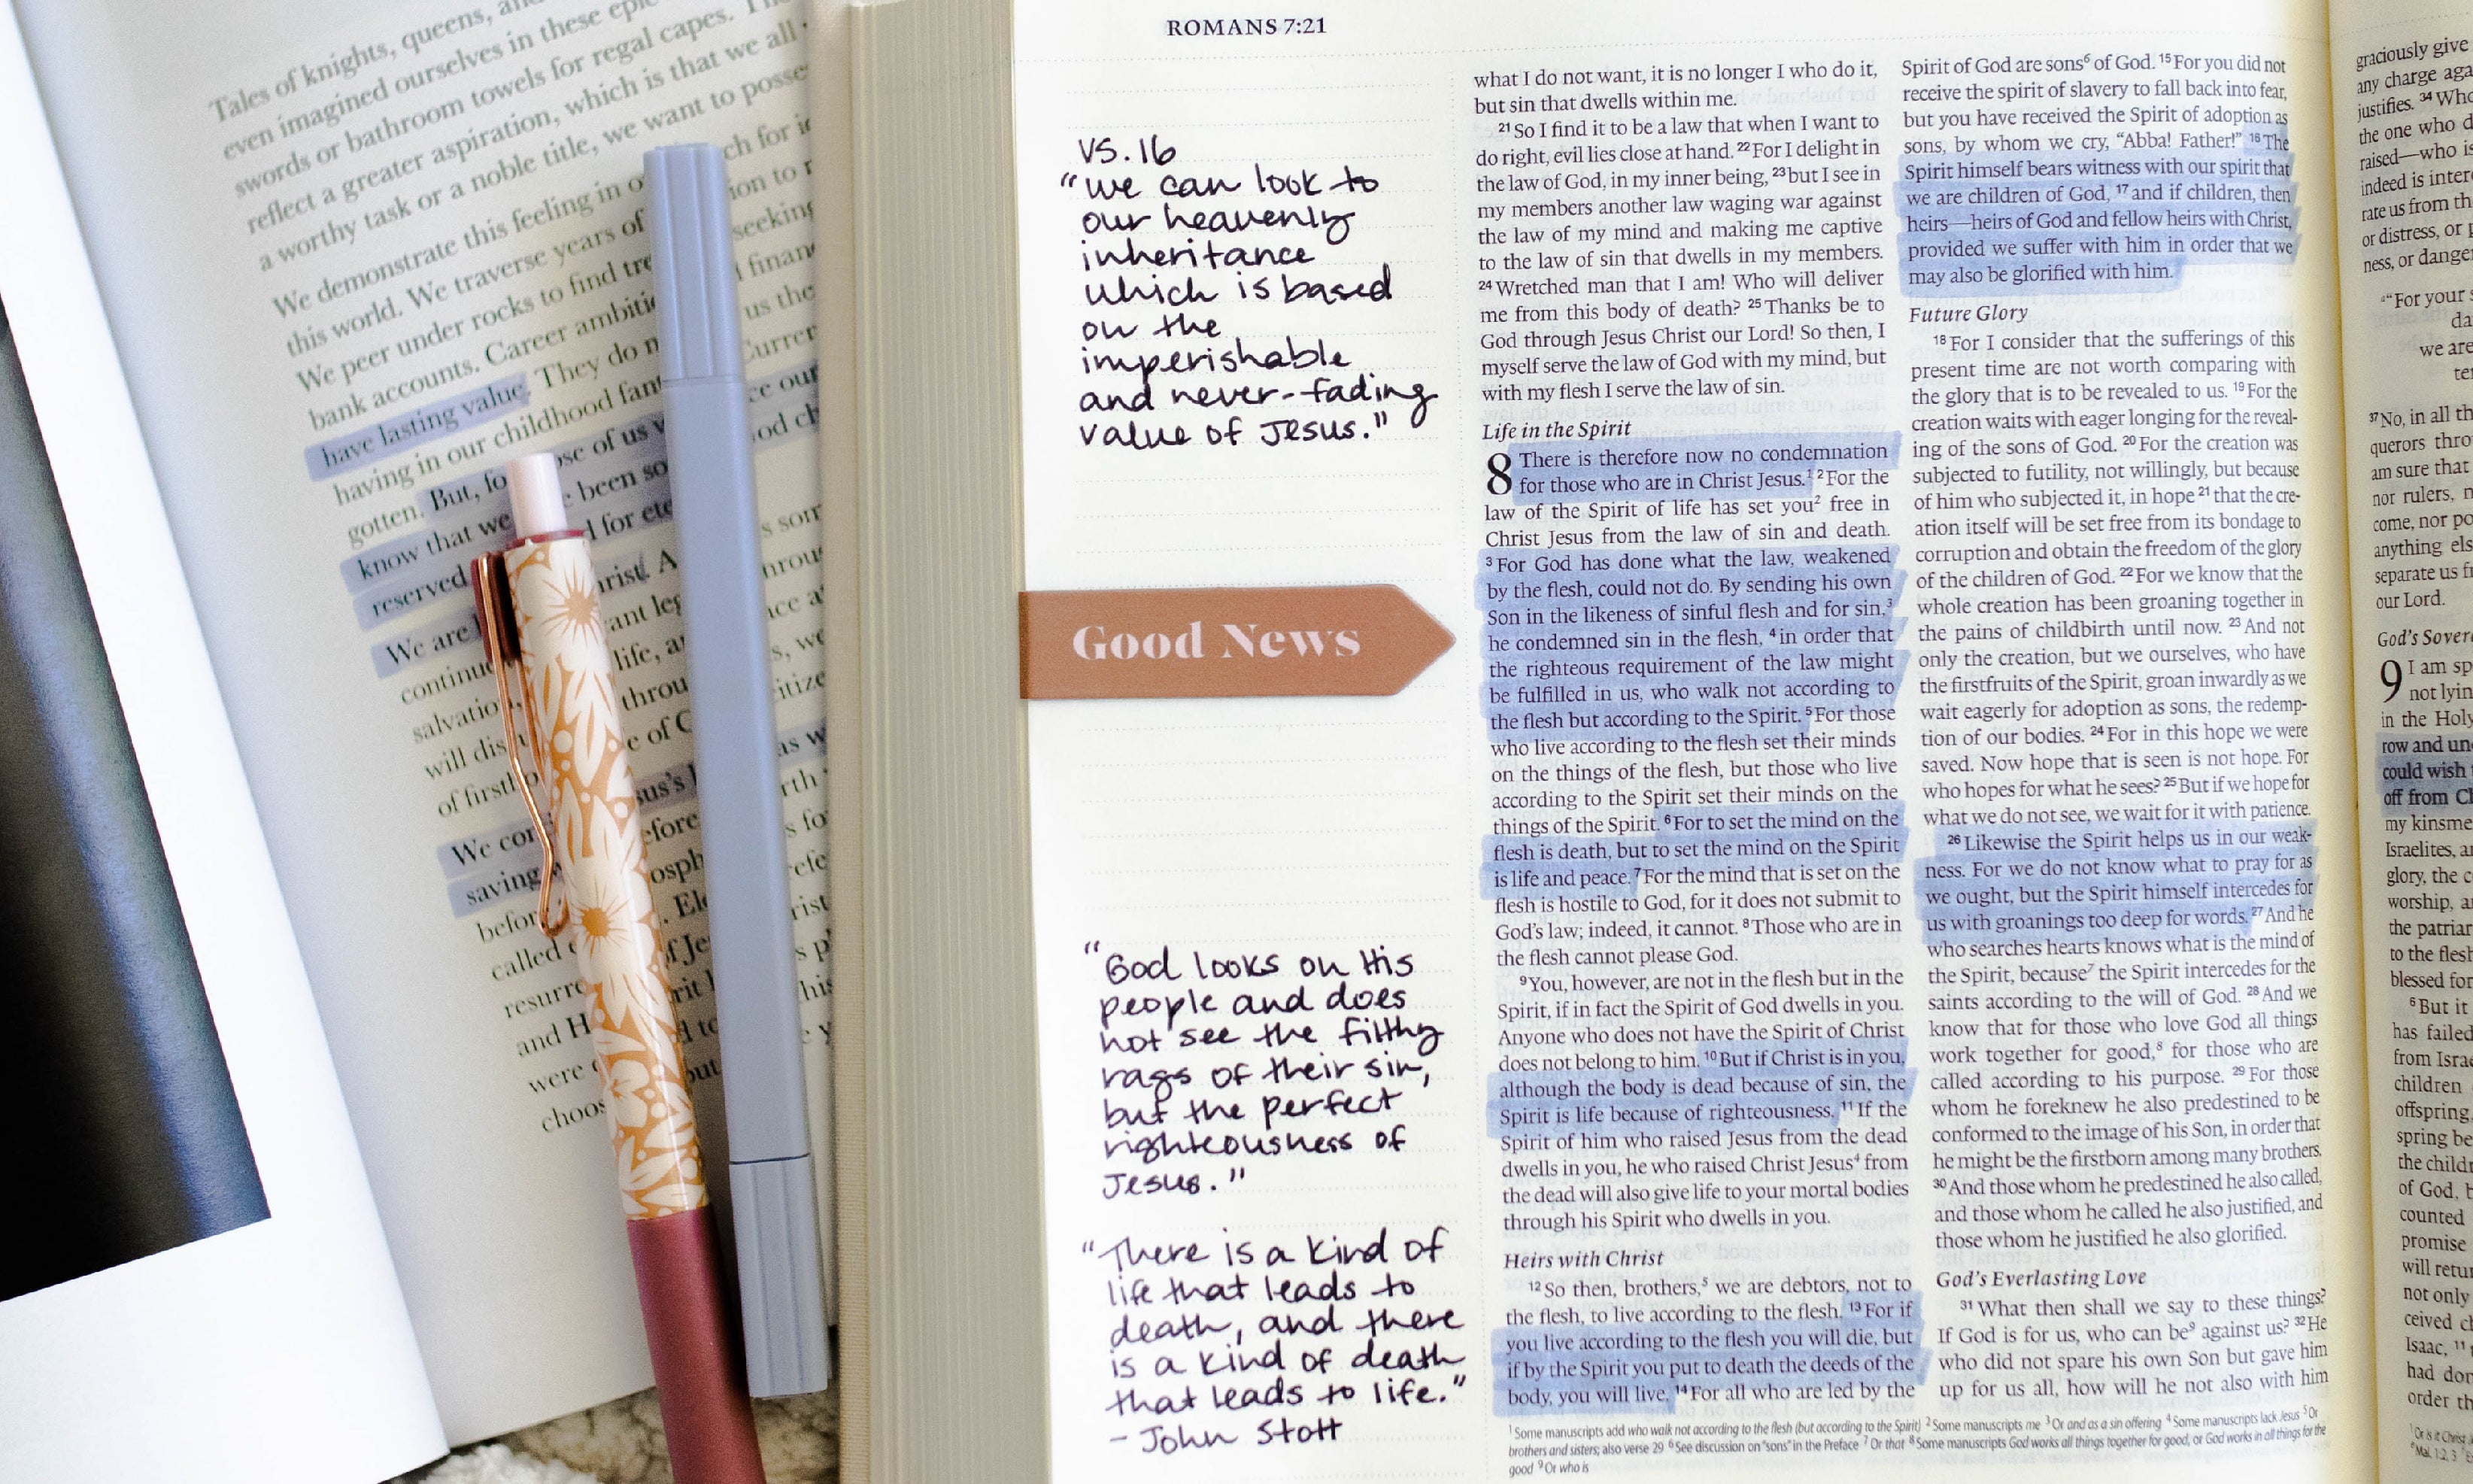 Tales of knights, queens,
even imagined ourselves in these
swords or bathroom towels for regal capes.
reflect a greater aspiration, which is that we all
a worthy task or a noble title, we want to
We demonstrate this feeling in
this world. We traverse years of seeking
We peer under rocks to find
bank accounts. Career us the
have lasting value. They do
having in our childhood our
gotten. But, of us
know that we been
reserved for
We are
continue life,
salvation,
will of
of
We
saving
before
called
and
were
ROMANS 7:21
VS. 16
"we can look to
our heavenly
inheritance
which is based
on the
imperishable
and never-fading
value of Jesus."
Good News
"God looks on His
people and does
not see the filthy
rags of their sin,
but the perfect
righteousness of
Jesus."
"There is a kind of
life that leads to
death, and there
is a kind of death
that leads to life."
- John Stott
what I do not want, it is no longer I who do it,
but sin that dwells within me.
21 So I find it to be a law that when I want to
do right, evil lies close at hand. 22 For I delight in
the law of God, in my inner being, 23 but I see in
my members another law waging war against
the law of my mind and making me captive
to the law of sin that dwells in my members.
24 Wretched man that I am! Who will deliver
me from this body of death? 25 Thanks be to
God through Jesus Christ our Lord! So then, I
myself serve the law of God with my mind, but
with my flesh I serve the law of sin.
Life in the Spirit
8 There is therefore now no condemnation
for those who are in Christ Jesus.1 2 For the
law of the Spirit of life has set you2 free in
Christ Jesus from the law of sin and death.
3 For God has done what the law, weakened
by the flesh, could not do. By sending his own
Son in the likeness of sinful flesh and for sin,3
he condemned sin in the flesh, 4 in order that
the righteous requirement of the law might
be fulfilled in us, who walk not according to
the flesh but according to the Spirit. 5 For those
who live according to the flesh set their minds
on the things of the flesh, but those who live
according to the Spirit set their minds on the
things of the Spirit. 6 For to set the mind on the
flesh is death, but to set the mind on the Spirit
is life and peace. 7 For the mind that is set on the
flesh is hostile to God, for it does not submit to
God's law; indeed, it cannot. 8 Those who are in
the flesh cannot please God.
9 You, however, are not in the flesh but in the
Spirit, if in fact the Spirit of God dwells in you.
Anyone who does not have the Spirit of Christ
does not belong to him. 10 But if Christ is in you,
although the body is dead because of sin, the
Spirit is life because of righteousness. 11 If the
Spirit of him who raised Jesus from the dead
dwells in you, he who raised Christ Jesus4 from
the dead will also give life to your mortal bodies
through his Spirit who dwells in you.
Heirs with Christ
12 So then, brothers,5 we are debtors, not to
the flesh, to live according to the flesh. 13 For if
you live according to the flesh you will die, but
if by the Spirit you put to death the deeds of the
body, you will live. 14 For all who are led by the
Spirit of God are sons6 of God. 15 For you did not
receive the spirit of slavery to fall back into fear,
but you have received the Spirit of adoption as
sons, by whom we cry, "Abba! Father!" 16 The
Spirit himself bears witness with our spirit that
we are children of God, 17 and if children, then
heirs—heirs of God and fellow heirs with Christ,
provided we suffer with him in order that we
may also be glorified with him.
Future Glory
18 For I consider that the sufferings of this
present time are not worth comparing with
the glory that is to be revealed to us. 19 For the
creation waits with eager longing for the reveal-
ing of the sons of God. 20 For the creation was
subjected to futility, not willingly, but because
of him who subjected it, in hope 21 that the cre-
ation itself will be set free from its bondage to
corruption and obtain the freedom of the glory
of the children of God. 22 For we know that the
whole creation has been groaning together in
the pains of childbirth until now. 23 And not
only the creation, but we ourselves, who have
the firstfruits of the Spirit, groan inwardly as we
wait eagerly for adoption as sons, the redemp-
tion of our bodies. 24 For in this hope we were
saved. Now hope that is seen is not hope. For
who hopes for what he sees? 25 But if we hope for
what we do not see, we wait for it with patience.
26 Likewise the Spirit helps us in our weak-
ness. For we do not know what to pray for as
we ought, but the Spirit himself intercedes for
us with groanings too deep for words. 27 And he
who searches hearts knows what is the mind of
the Spirit, because7 the Spirit intercedes for the
saints according to the will of God. 28 And we
know that for those who love God all things
work together for good,8 for those who are
called according to his purpose. 29 For those
whom he foreknew he also predestined to be
conformed to the image of his Son, in order that
he might be the firstborn among many brothers.
30 And those whom he predestined he also called,
and those whom he called he also justified, and
those whom he justified he also glorified.
God's Everlasting Love
31 What then shall we say to these things?
If God is for us, who can be9 against us? 32 He
who did not spare his own Son but gave him
up for us all, how will he not also with him
1 Some manuscripts add who walk not according to the flesh (but according to the Spirit) 2 Some manuscripts me 3 Or and as a sin offering 4 Some manuscripts lack Jesus 5 Or
brothers and sisters; also verse 29 6 See discussion on "sons" in the Preface 7 Or that 8 Some manuscripts God works all things together for good, or God works in all things for the
good 9 Or who is
graciously give
any charge
justifies. 34
the one who
raised—who is
indeed is
rate us from
or distress, or
ness, or
"For your
we are
37 No, in all
querors
am sure that
nor rulers,
come, nor
anything
separate us
our Lord.
God's
9 I am
not
in the
row and
could wish
off from
my
Israelites,
glory, the
worship,
the
to the flesh
blessed
6 But it
has failed
from
children
offspring,
spring
the
of God,
counted
promise
will
not only
ceived
Isaac, 11
had
order